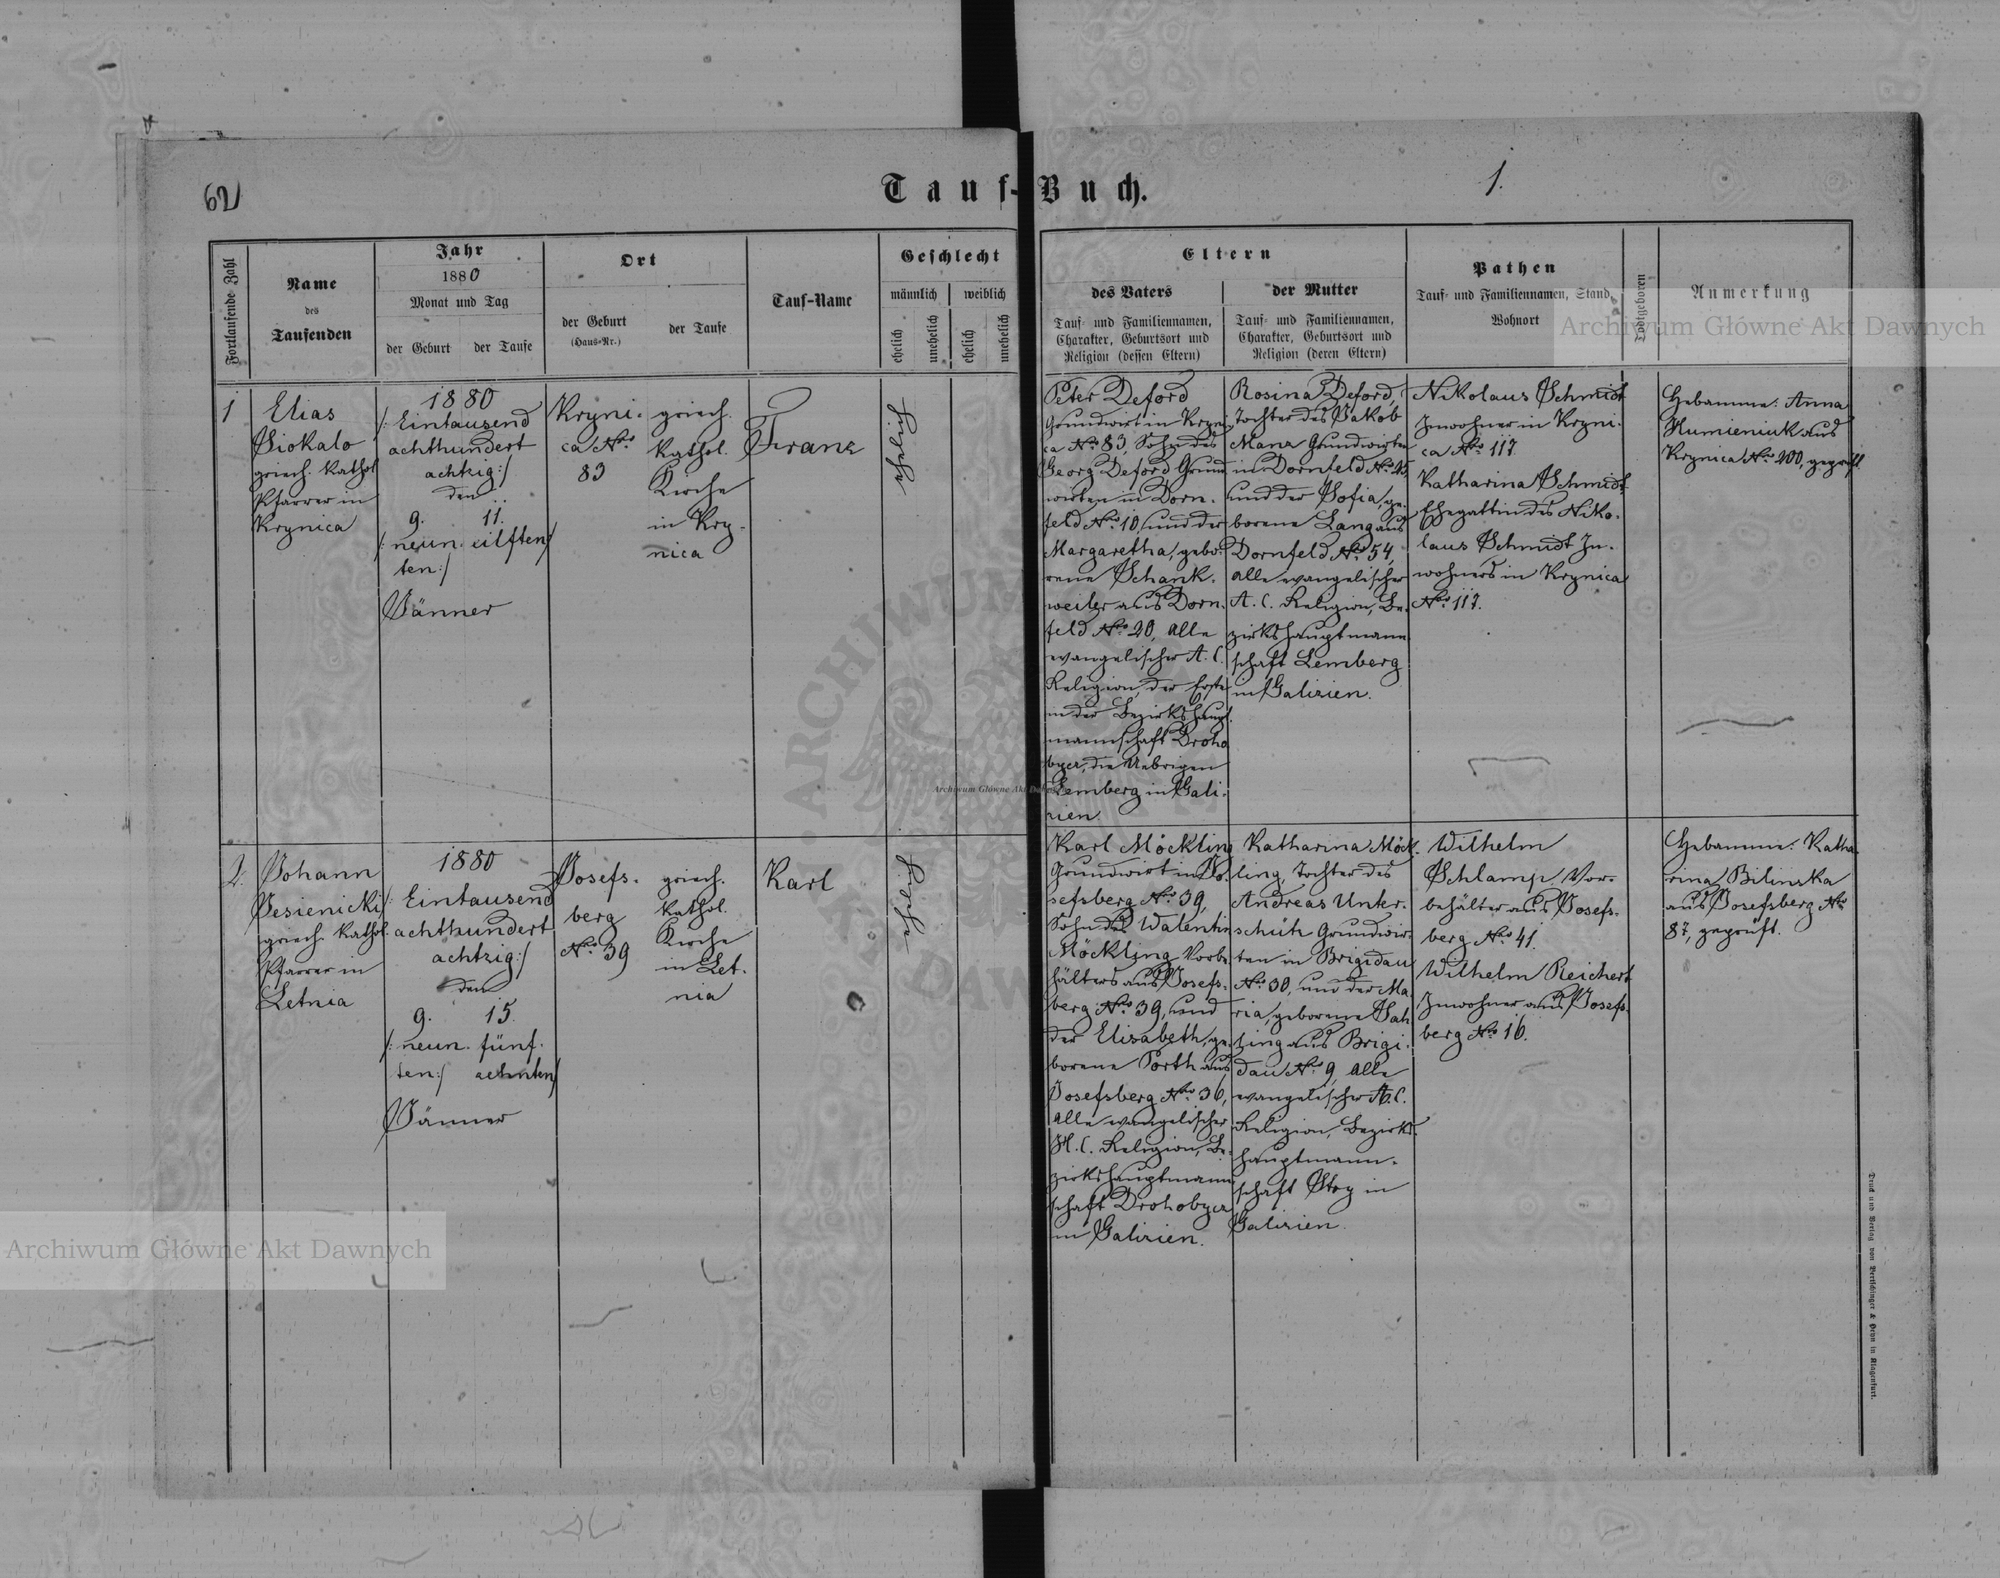 62
Tauf-Buch.
1.
Fortlaufende Zahl
Name
des
Taufenden
Jahr
1880
Monat und Tag
der Geburt
der Taufe
Ort
der Geburt
(Haus-Nr.)
der Taufe
Tauf-Name
Geschlecht
männlich
weiblich
ehelich
unehelich
ehelich
unehelich
Eltern
des Vaters
Tauf- und Familiennamen,
Charakter, Geburtsort und
Religion (dessen Eltern)
der Mutter
Tauf- und Familiennamen,
Charakter, Geburtsort und
Religion (deren Eltern)
Pathen
Tauf- und Familiennamen, Stand,
Wohnort
Todtgeboren
Anmerkung
1
Elias
Siokalo
griech. kathol.
Pfarrer in
Krynica
1880
/: Eintausend
achthundert
achtzig :/
den
9. 11.
/: neun- eilften/
ten :/
Jänner
Kryni-
ca No.
83
griech.
kathol.
Kirche
in Kry-
nica
Franz
ehelich
Peter Deford
Grundwirt in Kryni-
ca No. 83, Sohn des
Georg Deford Grund-
wirten in Dorn-
feld No. 10, und der
Margaretha, gebo-
rene Schank-
weiler aus Dorn-
feld No. 20, alle
evangelischer A. C.
Religion, der Erste
in der Bezirkshaupt-
mannschaft Droho-
bycz, die Uebrigen
Lemberg in Gali-
zien.
Rosina Deford,
Tochter des Jakob
Manz Grundwirten
in Dornfeld No. 25,
und der Sofia, ge-
borene Lang aus
Dornfeld No. 54,
alle evangelischer
A. C. Religion, Be-
zirkshauptmann-
schaft Lemberg
in Galizien.
Nikolaus Schmidt
Inwohner in Kryni-
ca No. 117.
Katharina Schmidt
Ehegattin des Niko-
laus Schmidt In-
wohners in Krynica
No. 117.
Hebamme: Anna
Humieniuk aus
Krynica No. 200, geprüft.
2.
Johann
Jesienicki
griech. kathol.
Pfarrer in
Letnia
1880
/: Eintausend
achthundert
achtzig :/
den
9. 15.
/: neun- fünf-
ten :/ zehnten/
Jänner
Josefs-
berg
No. 39
griech.
kathol.
Kirche
in Let-
nia
Karl
ehelich
Karl Möckling
Grundwirt in Jo-
sefsberg No. 39,
Sohn des Walentin
Möckling Vorbe-
hälters aus Josefs-
berg No. 39, und
der Elisabeth, ge-
borene Porth aus
Josefsberg No. 36,
alle evangelischer
H. C. Religion, Be-
zirkshauptmann-
schaft Drohobycz
in Galizien.
Katharina Möck-
ling, Tochter des
Andreas Unter-
schütz Grundwir-
ten in Brigidau
No. 30, und der Ma-
ria, geborene
ling aus Brigi-
dau No. 9, alle
evangelischer A. C.
Religion, Bezirks-
hauptmann-
schaft Stryj in
Galizien.
Wilhelm
Schlamp Vor-
behälter aus Josefs-
berg No. 41.
Wilhelm Reichert
Inwohner aus Josefs-
berg No. 16.
Hebamme: Katha-
rina Bilinska
aus Josefsberg No.
87, geprüft.
Druck und Verlag von Bertschinger & Heyn in Klagenfurt.
Archiwum Główne Akt Dawnych
Archiwum Główne Akt Dawnych
Archiwum Główne Akt Dawnych